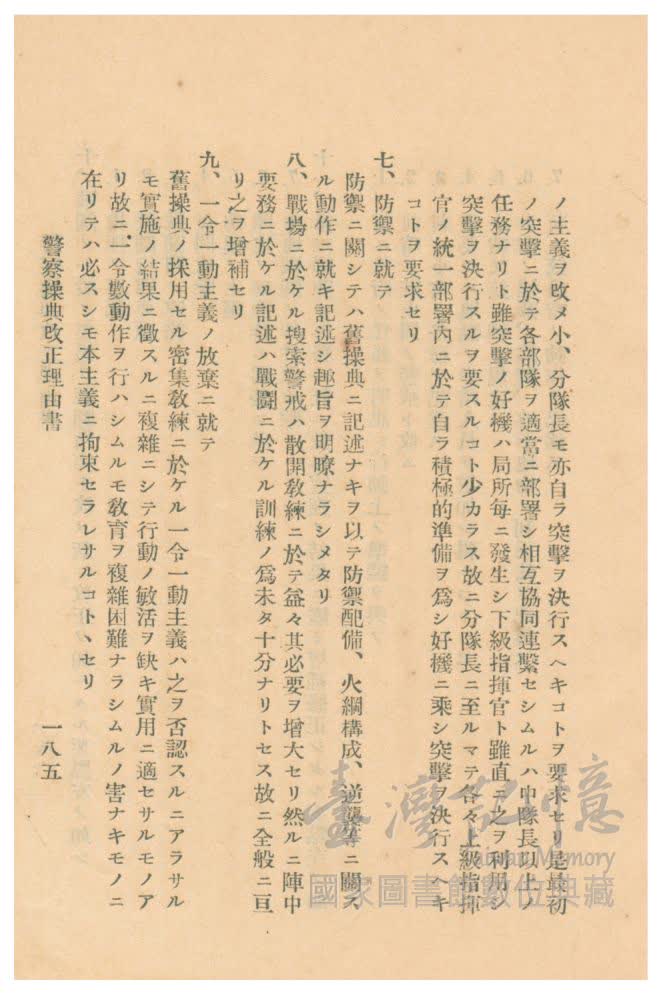 ノ主義ヲ改メ小、分隊長モ亦自ラ突擊ヲ決行スヘキコトヲ要求セリ是最初
ノ突擊ニ於テ各部隊ヲ適當ニ部署シ相互協同連繫セシムルハ中隊長以上ノ
任務ナリト雖突擊ノ好機ハ局所每ニ發生シ下級指揮官ト雖直ニ之ヲ利用シ
突擊ヲ決行スルヲ要スルコト少カラス故ニ分隊長ニ至ルマテ各々上級指揮
官ノ統一部署內ニ於テ自ラ積極的準備ヲ爲シ好機ニ乘シ突擊ヲ決行スヘキ
コトヲ要求セリ
七、防禦ニ就テ
防禦ニ關シテハ舊操典ニ記述ナキヲ以テ防禦配備、火網構成、逆襲等ニ關ス
ル動作ニ就キ記述シ趣旨ヲ明瞭ナラシメタリ
八、戰場ニ於ケル搜索警戒ハ散開敎練ニ於テ益々其必要ヲ增大セリ然ルニ陣中
要務ニ於ケル記述ハ戰鬪ニ於ケル訓練ノ爲未タ十分ナリトセス故ニ全般ニ亘
リ之ヲ增補セリ
九、一令一動主義ノ放棄ニ就テ
舊操典ノ採用セル密集敎練ニ於ケル一令一動主義ハ之ヲ否認スルニアラサル
モ實施ノ結果ニ徵スルニ複雜ニシテ行動ノ敏活ヲ缺キ實用ニ適セサルモノア
リ故ニ一令數動作ヲ行ハシムルモ敎育ヲ複雜困難ナラシムルノ害ナキモノニ
在リテハ必スシモ本主義ニ拘束セラレサルコトヽセリ
警察操典改正理由書
一八五
臺灣記憶
Taiwan Memory
國家圖書館數位典藏